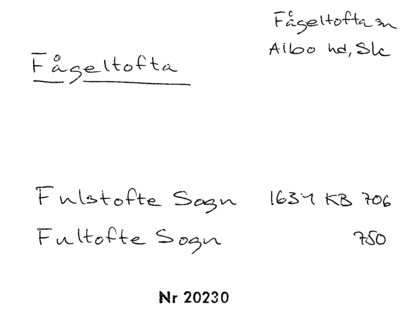 Fågeltofta
Fågeltofta sn
Albo hd, Sk
Fulstofte Sogn 1634 KB 706
Fultofte Sogn 750
Nr 20230